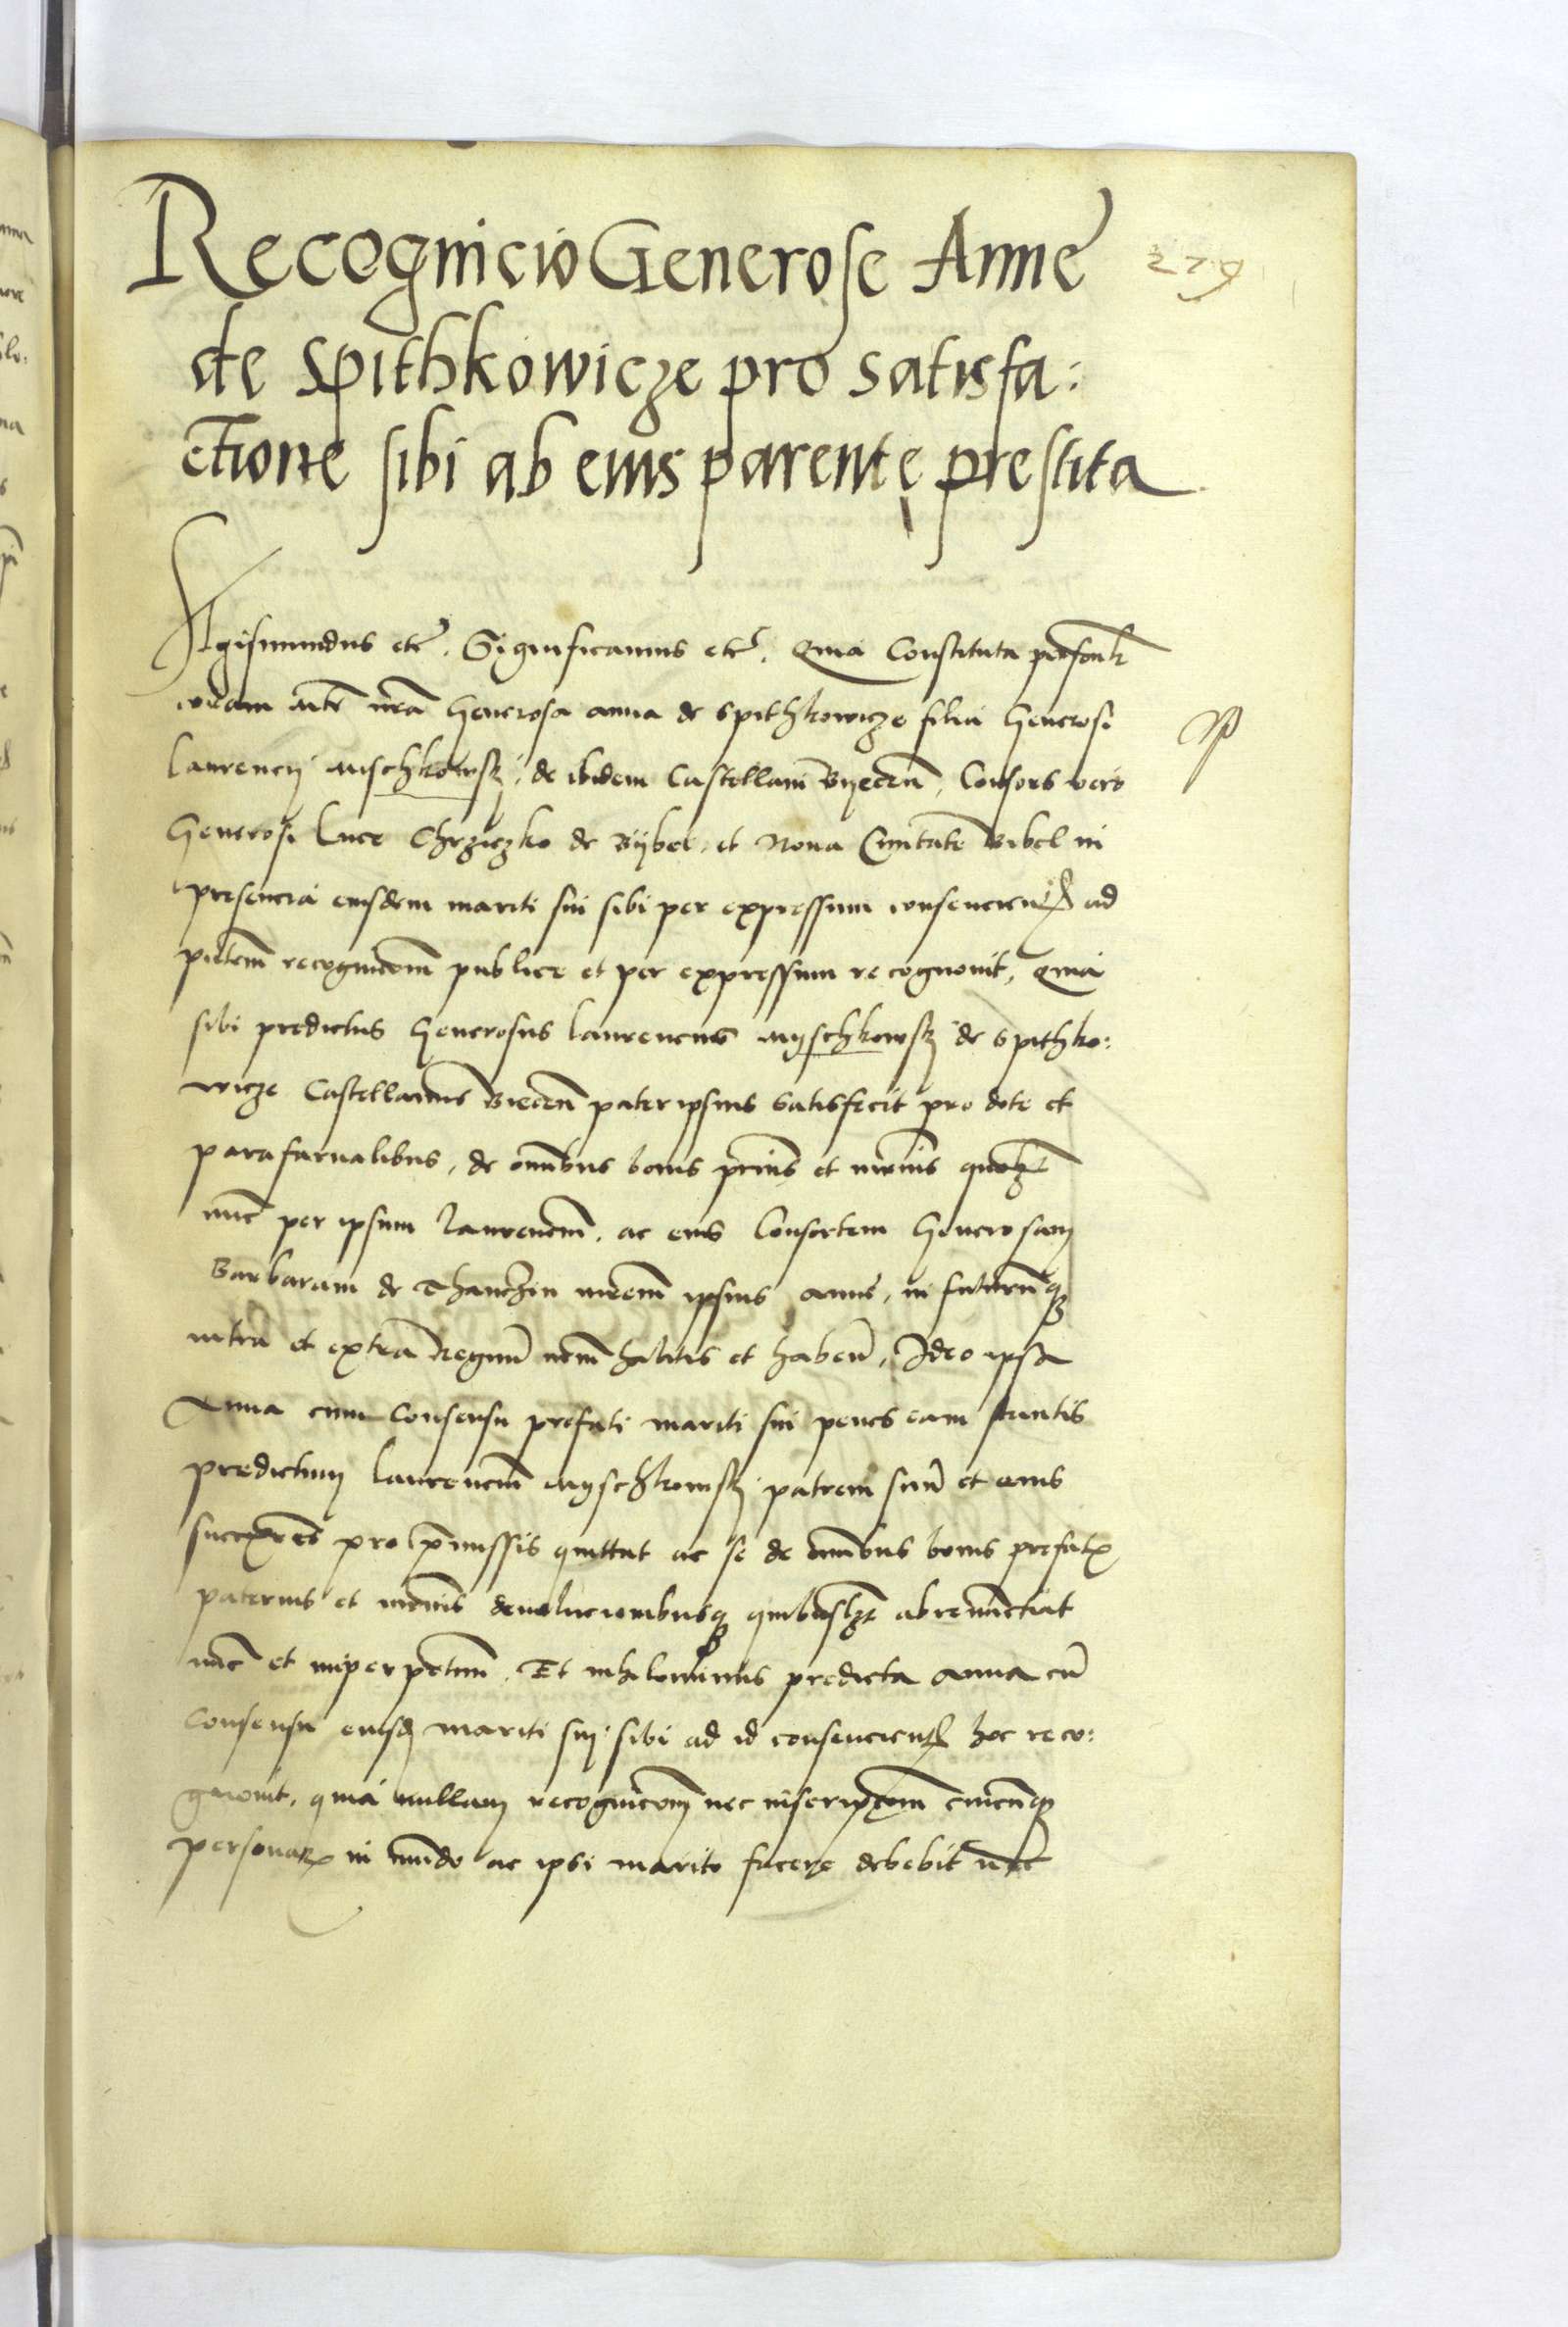 Recognicio Generose Anne
279
de Spithkowicze pro satisfa:
ctione sibi ab eius parente prestita
Sigismundus etc. Significamus etc. Quia Constituta personalr
coram nre Generosa Anna de Spithkowicze filia Generosi
Laurencij Mischkowskj de ibidem Castellani Byecen, Consors vero
Generosi Luce Chrziczko de Bijbel et Noua Ciuitate Bibel in
presencia eiusdem mariti sui sibi per expressum consencien ad
recognicom publice et per expressum recognouit, Quia
sibi predictus Generosus Laurencius Myschkowskj de Spithko:
wicze Castellanus Biecen pater ipsius satisfecit pro dote et
parafarnalibus, de omnibus bonis prnis et mrnis
nunc per ipsum Laurencm, ac eius Consortem Generosam
Barbaram de Thanczin mrem ipsius Anne, in futurumq
intra et extra Regnum habitis et haben, Ideo ipsa
Anna cum Consensu prefati mariti sui penes eam stantis
predictum Laurencm Myschkowskj patrem suum et eius
successores pro premissis quittat ac se de omnibus bonis prefatis
paternis et mrnis deuolucionibusq quibuslzt abrenunctiat
nunc et inperpetuum. Et nihilominus predicta Anna cum
Consensu eiusd mariti suj sibi ad id consencien hoc reco:
gnouit, quia nullam recognicom nec inscripcom cuicunq
personar in mundo ac ipsi marito facere debebit nec